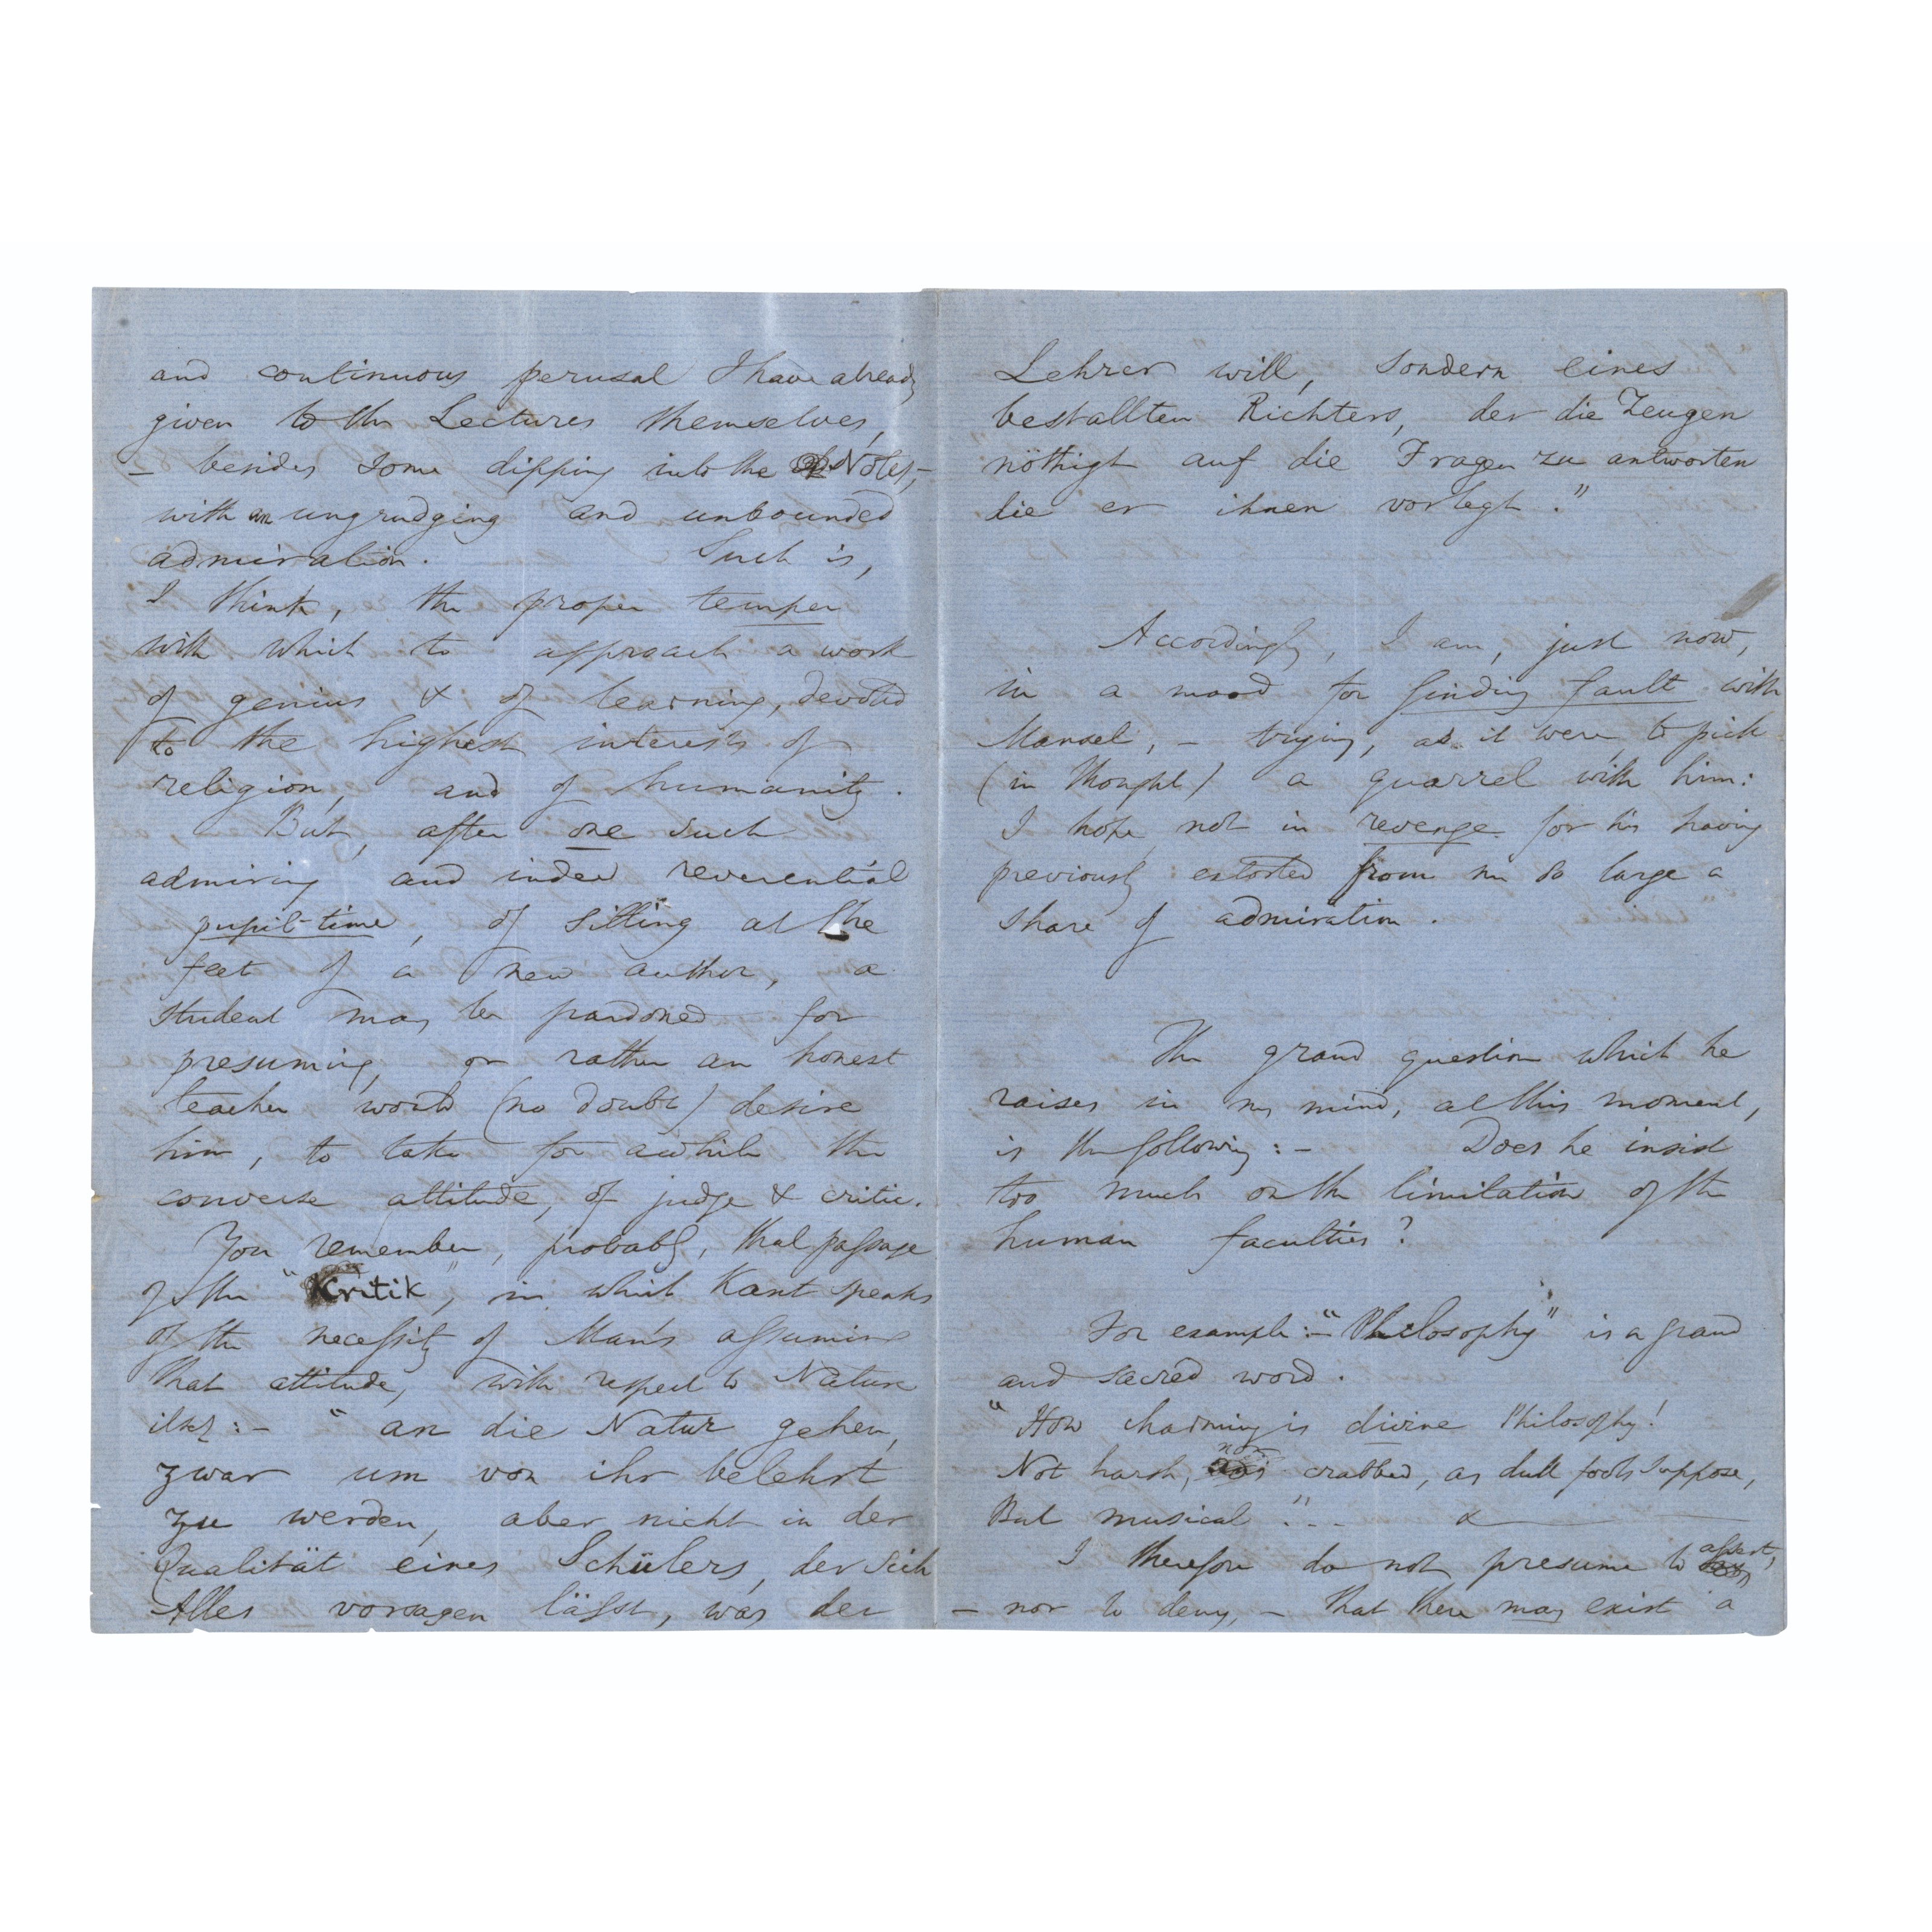 and continuous perusal I have already
given to the Lectures themselves,
– besides some dipping into the Notes, –
with an ungrudging and unbounded
admiration. Such is,
I think, the proper temper
with which to approach a work
of genius & of learning, devoted
to the highest interests of
religion, and of humanity.
But, after one such
admiring and indeed reverential
pupil-time, of sitting at the
feet of a new author, a
student may be pardoned for
presuming, or rather an honest
teacher would (no doubt) desire
him, to take for awhile the
converse attitude, of judge & critic.
You remember, probably, that passage
of the "Kritik", in which Kant speaks
of the necessity of Man's assuming
that attitude, with respect to Nature
itself: – "an die Natur gehen,
zwar um von ihr belehrt
zu werden, aber nicht in der
Qualität eines Schülers, der sich
Alles vorsagen lässt, was der
Lehrer will, sondern eines
bestallten Richters, der die Zeugen
nöthigt auf die Fragen zu antworten
die er ihnen vorlegt."
Accordingly, I am, just now,
in a mood for finding fault with
Mansel, – trying, as it were, to pick
(in thought) a quarrel with him:
I hope not in revenge for his having
previously extorted from me so large a
share of admiration.
The grand question which he
raises in my mind, at this moment,
is the following: – Does he insist
too much on the limitation of the
human faculties?
For example: – "Philosophy" is a grand
and sacred word.
"How charming is divine Philosophy!
Not harsh, nor crabbed, as dull fools suppose,
But musical" . . .
I therefore do not presume to assert,
– nor to deny, – that there may exist a